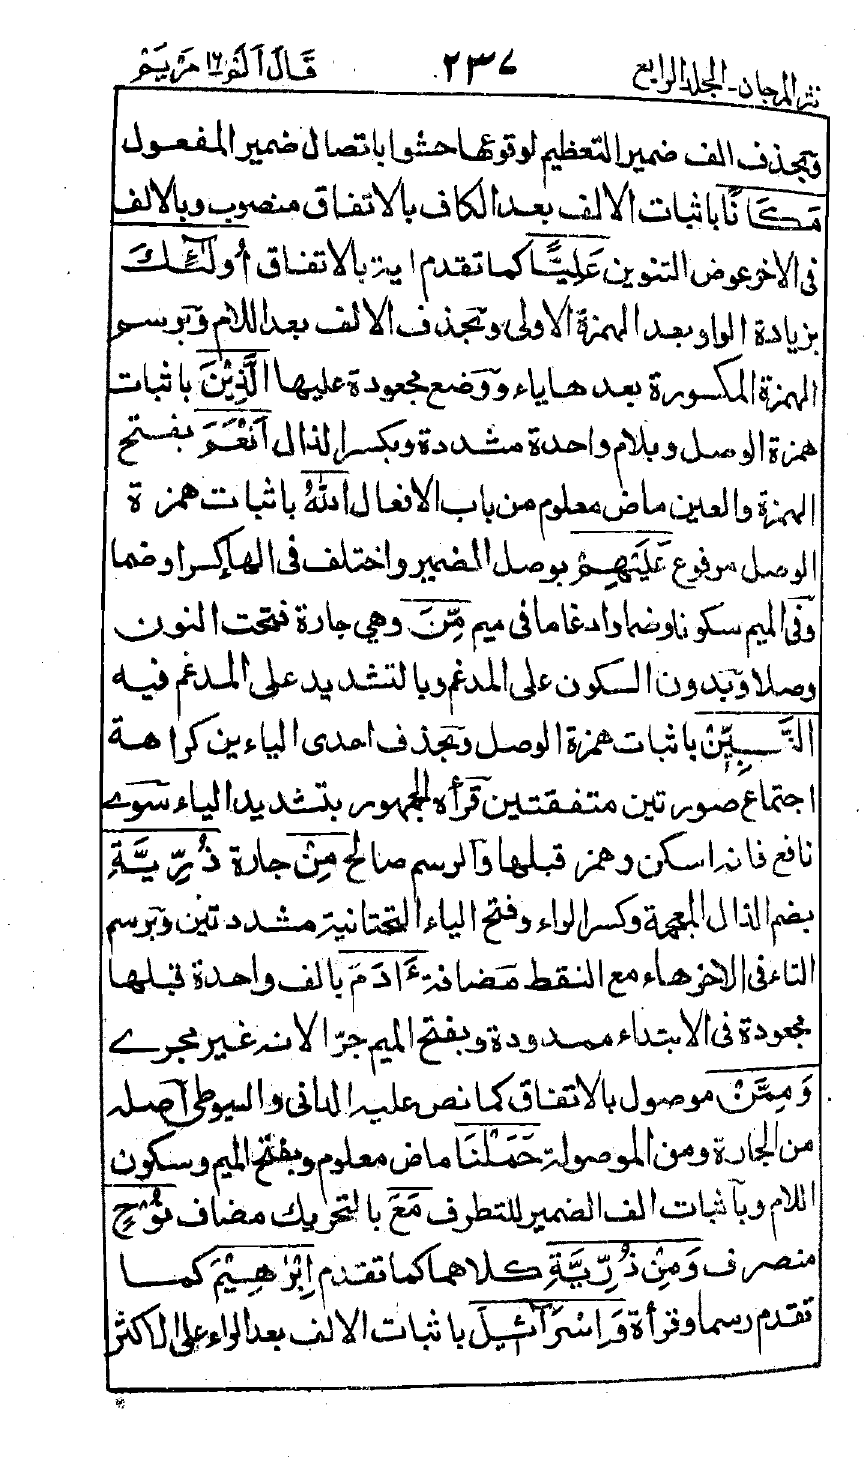 نثر المرجان - الجلد الرابع ٢٣٧ قَالَ اَلَمْ ١٦ مَرْيَمْ
وبحذف الف ضمير التعظيم لوقوعها حشوا باتصال ضمير المفعول
مَكَانًا باثبات الالف بعد الكاف بالاتفاق منصوب وبالالف
فى الاخر عوض التنوين عَلِيًّا كما تقدم اية بالاتفاق أُولٰٓئِكَ
بزيادة الواو بعد الهمزة الاولى وبحذف الالف بعد اللام وبرسم
الهمزة المكسورة بعدها ياء ووضع مجعودة عليها الَّذِيْنَ باثبات
همزة الوصل وبلام واحدة مشددة وبكسر الذال اَنْعَمَ بفتح
الهمزة والعين ماض معلوم من باب الافعال اَللّٰهُ باثبات همزة
الوصل مرفوع عَلَيْهِمْ بوصل الضمير واختلف فى الهاء كسرا وضما
وفى الميم سكونا وضما وادغاما فى ميم مِّنَ وهي جارة فتحت النون
وصلا وبدون السكون على المدغم وبالتشديد على المدغم فيه
النَّبِيّٖنَ باثبات همزة الوصل وبحذف احدى الياءين كراهة
اجتماع صورتين متفقتين قرأه الجمهور بتشديد الياء سوے
نافع فانه اسكن وهمز قبلها والرسم صالح مِنْ جارة ذُرِّيَّةِ
بضم الذال المعجمة وكسر الراء وفتح الياء التحتانية مشددتين وبرسم
التاء فى الاخر هاء مع النقط مضافة ءَادَمَ بالف واحدة قبلها
مجعودة فى الابتداء ممدودة وبفتح الميم جرّا لانه غير مجرے
وَمِمَّنْ موصول بالاتفاق كما نص عليه الدانى والسيوطى اصله
من الجارة ومن الموصولة حَمَلْنَا ماض معلوم وبفتح الميم وسكون
اللام وباثبات الف الضمير للتطرف مَعَ بالتحريك مضاف نُوْحٍ
منصرف وَمِنْ ذُرِّيَّةِ كلاهما كما تقدم اِبْرٰهِيْمَ كما
تقدم رسما وقرأة وَاِسْرَآئِيْلَ باثبات الالف بعد الراء على الاكثر